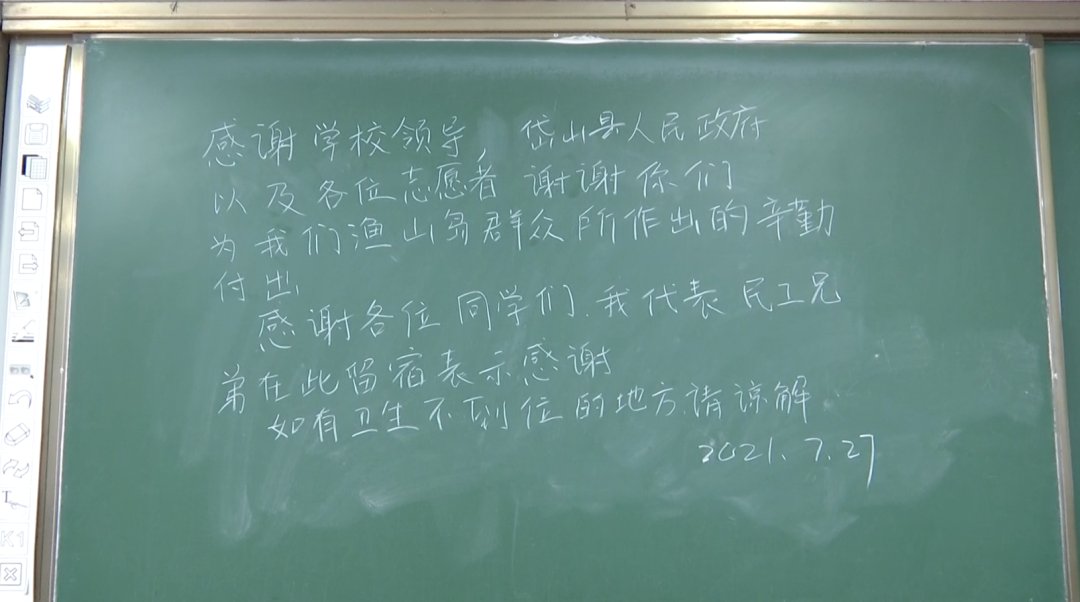 感谢学校领导，岱山县人民政府
以及各位志愿者 谢谢你们
为我们渔山岛群众所作出的辛勤
付出
感谢各位同学们.我代表民工兄
弟在此留宿表示感谢
如有卫生不到位的地方.请谅解
2021.7.27
T
K1